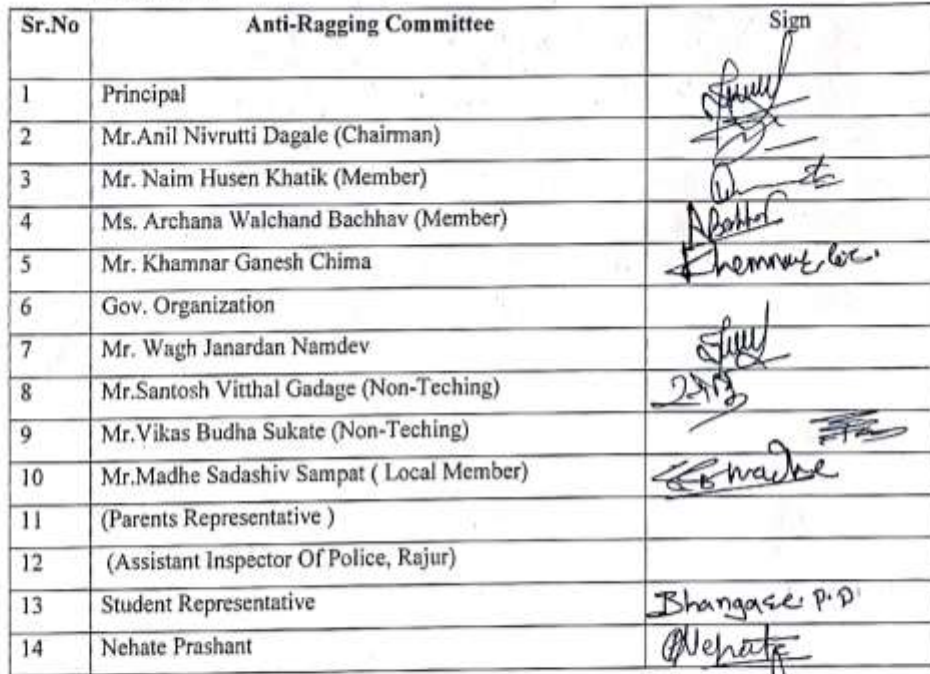 Sr.No Anti-Ragging Committee Sign
1 Principal
2 Mr.Anil Nivrutti Dagale (Chairman)
3 Mr. Naim Husen Khatik (Member)
4 Ms. Archana Walchand Bachhav (Member)
5 Mr. Khamnar Ganesh Chima
6 Gov. Organization
7 Mr. Wagh Janardan Namdev
8 Mr.Santosh Vitthal Gadage (Non-Teching)
9 Mr.Vikas Budha Sukate (Non-Teching)
10 Mr.Madhe Sadashiv Sampat ( Local Member)
11 (Parents Representative )
12 (Assistant Inspector Of Police, Rajur)
13 Student Representative Bhangare P.D
14 Nehate Prashant Nehate